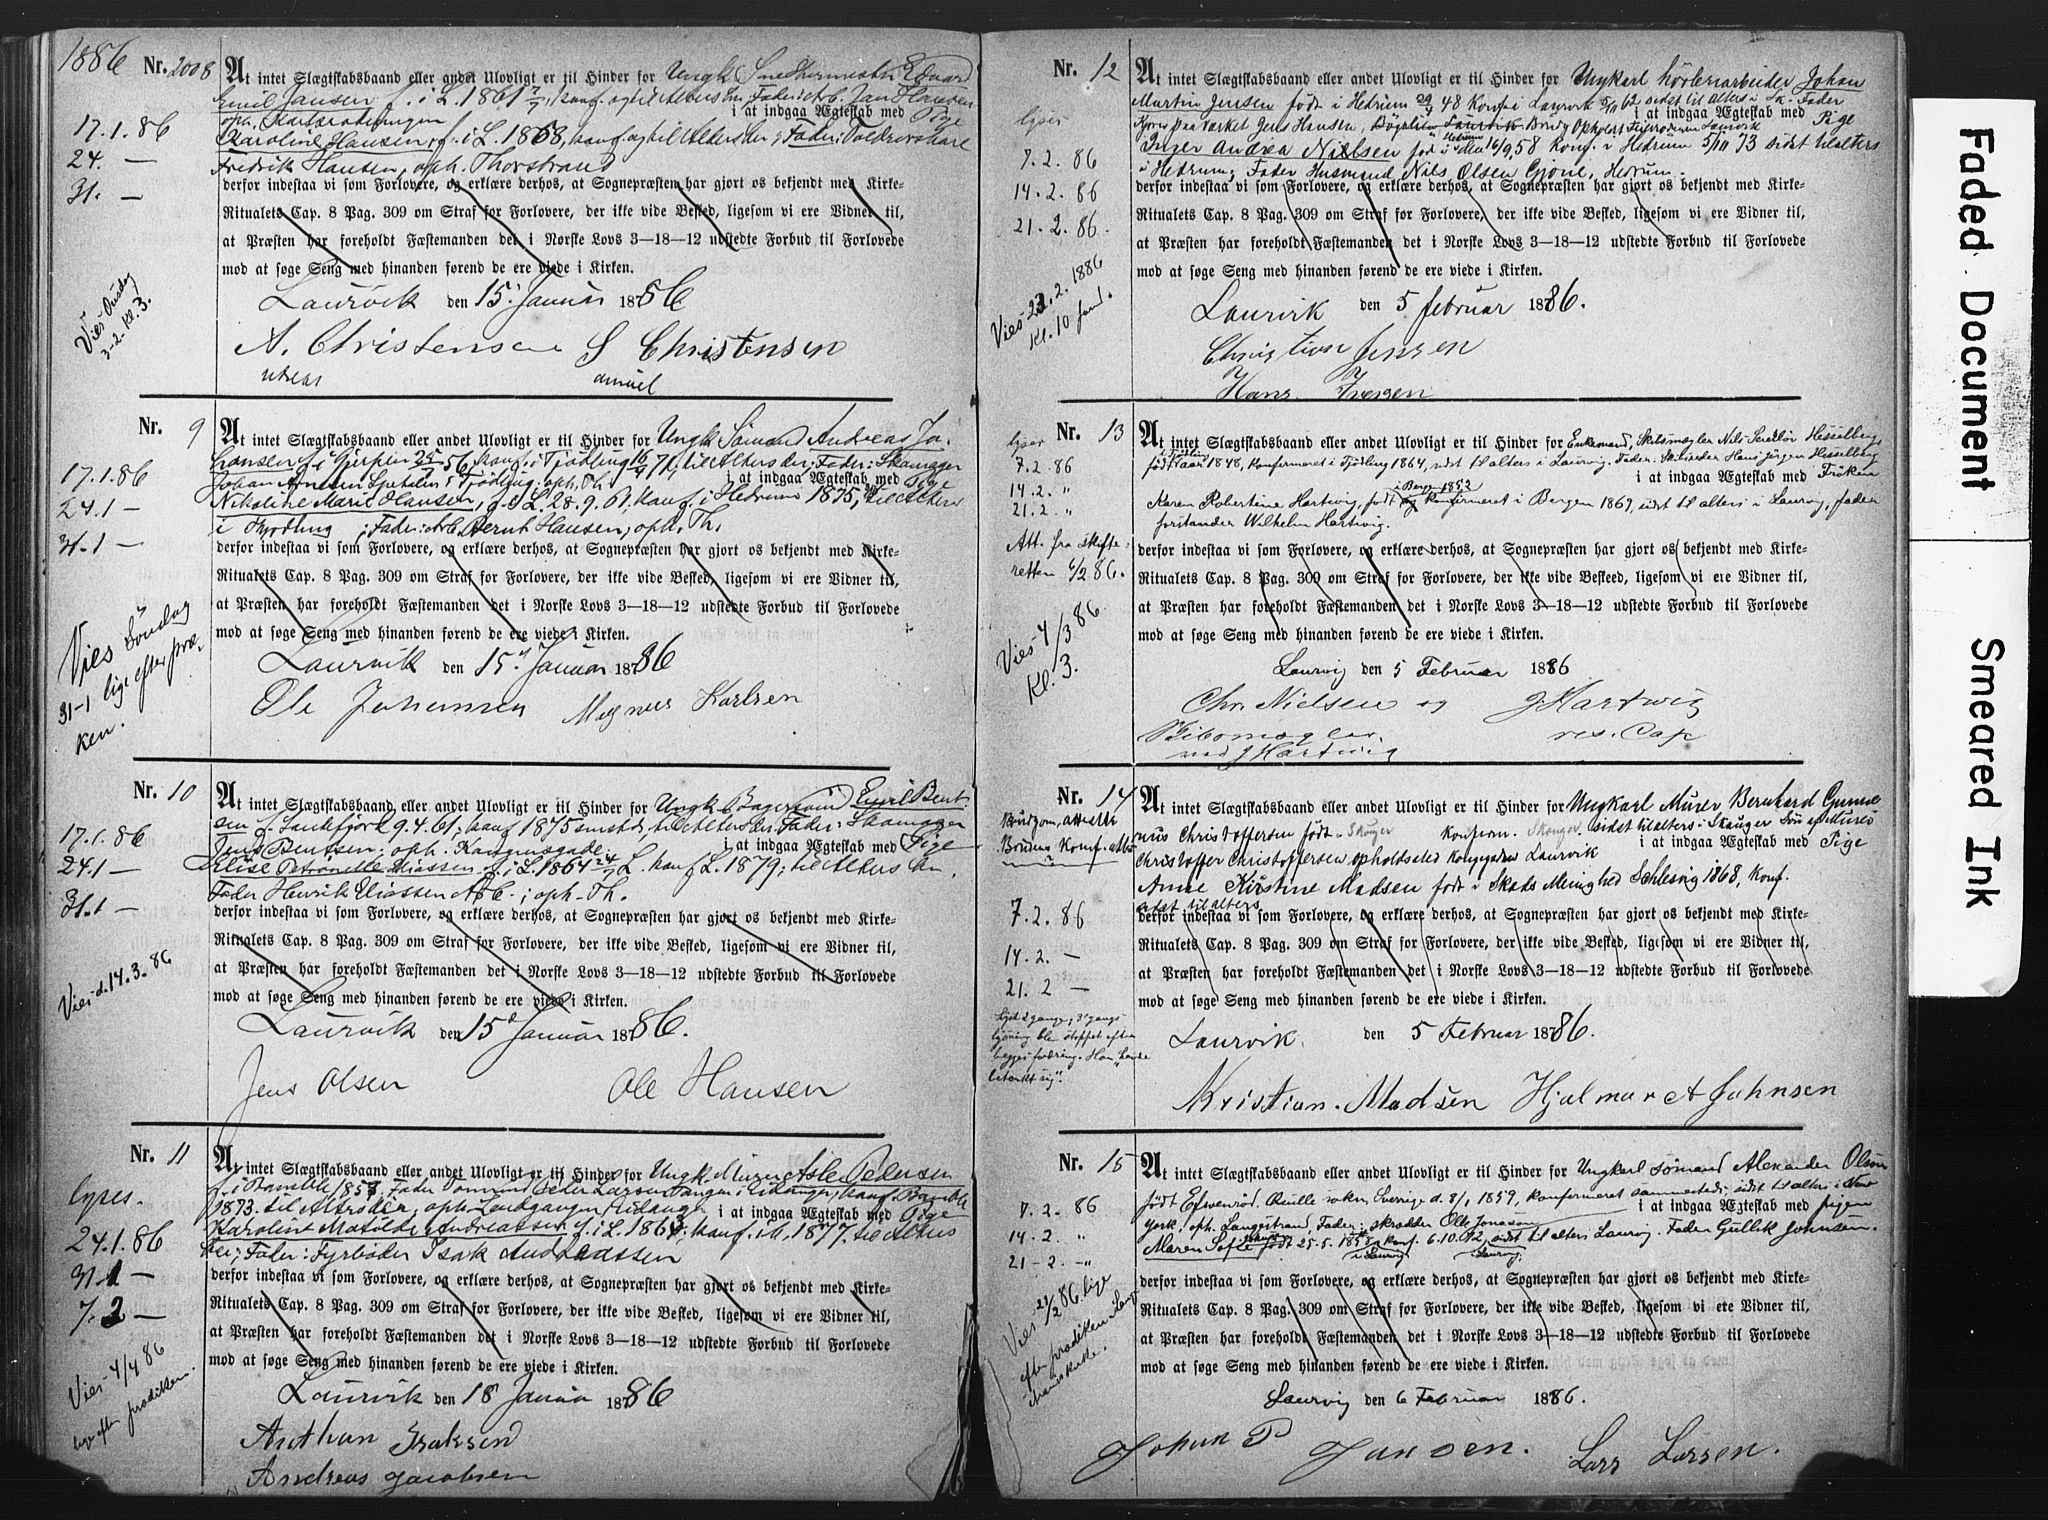 1886
Nr. 2008
At intet Slægtskabsbaand eller andet Ulovligt er til Hinder for Ungk. Snedkermester Edvard
Emil Jansen f. i L. 1861 konf. og til Alters her, Fader: Arb. Jan Hansen
oph.
i at indgaa Ægteskab med Pige
Karoline Hansen, f. i L. 1868, konf. og til Alters her; Fader:
Fredrik Hansen, oph. Thorstrand
derfor indestaa vi som Forlovere, og erklære derhos, at Sognepræsten har gjort os bekjendt med Kirke-
Ritualets Cap. 8 Pag. 309 om Straf for Forlovere, der ikke vide Besked, ligesom vi ere Vidner til,
at Præsten har foreholdt Fæstemanden det i Norske Lovs 3–18–12 udstedte Forbud til Forlovede
mod at søge Seng med hinanden førend de ere viede i Kirken.
17.1.86
24. —
31. —
Vies Onsdag
3-2. Kl. 3.
Laurvik den 15 Januar 1886
A. Christensen S Christensen
ndreas amuel
Nr. 9
At intet Slægtskabsbaand eller andet Ulovligt er til Hinder for Ungk. Sømand Andreas Jo-
hansen f. i Gjerpen 25 56, konf. i Tjødling 71, til Alters der, Fader: Skomager
Johan i Tjødling; oph. Th.
i at indgaa Ægteskab med Pige
Nikoline Marie Hansen, f. i L. 28.9.61, konf. i Hedrum 1875, til Alters
i Tjødling; Fader: Arb. Bernt Hansen, oph. Th.
derfor indestaa vi som Forlovere, og erklære derhos, at Sognepræsten har gjort os bekjendt med Kirke-
Ritualets Cap. 8 Pag. 309 om Straf for Forlovere, der ikke vide Besked, ligesom vi ere Vidner til,
at Præsten har foreholdt Fæstemanden det i Norske Lovs 3–18–12 udstedte Forbud til Forlovede
mod at søge Seng med hinanden førend de ere viede i Kirken.
17.1.86
24.1 —
31.1 —
Vies Søndag
31-1 lige efter præ-
ken.
Laurvik den 15 Januar 1886
Ole Johansen Magnus Karlsen
Nr. 10
At intet Slægtskabsbaand eller andet Ulovligt er til Hinder for Ungk. Bagersvend Emil Bent-
sen f. Sandefjord 9.4.61; konf. 1875 smstd, til Alters der, Fader: Skomager
Jens Bentsen; oph. Kongensgade;
i at indgaa Ægteskab med Pige
Elise Petronelle Eliassen f. i L. 1864 L. konf. L. 1879; til Alters
Fader Henrik Eliassen Arb.; oph. Th.
derfor indestaa vi som Forlovere, og erklære derhos, at Sognepræsten har gjort os bekjendt med Kirke-
Ritualets Cap. 8 Pag. 309 om Straf for Forlovere, der ikke vide Besked, ligesom vi ere Vidner til,
at Præsten har foreholdt Fæstemanden det i Norske Lovs 3–18–12 udstedte Forbud til Forlovede
mod at søge Seng med hinanden førend de ere viede i Kirken.
17.1.86
24.1 —
31.1 —
Vies d. 14.3.86
Laurvik den 15 Januar 1886.
Jens Olsen Ole Hansen
Nr. 11
At intet Slægtskabsbaand eller andet Ulovligt er til Hinder for Ungk. Murer Asle Pedersen
f. i Bamble 1857, Fader Peder Larsen i Eidanger, konf. Bamble
1873. til Alters der, oph. Eidanger
i at indgaa Ægteskab med Pige
Karoline Matilde Andreassen f. i L. 1863; konf. i L. 1877. til Alters
her; Fader: Fyrbøder Isak Andreassen
derfor indestaa vi som Forlovere, og erklære derhos, at Sognepræsten har gjort os bekjendt med Kirke-
Ritualets Cap. 8 Pag. 309 om Straf for Forlovere, der ikke vide Besked, ligesom vi ere Vidner til,
at Præsten har foreholdt Fæstemanden det i Norske Lovs 3–18–12 udstedte Forbud til Forlovede
mod at søge Seng med hinanden førend de ere viede i Kirken.
lyses.
24.1.86
31.1 —
7.2 —
Vies 4/4 86
lige efter prædiken.
Laurvik den 18 Januar 1886
Anthon Isaksen
Andreas Jacobsen
Nr. 12
At intet Slægtskabsbaand eller andet Ulovligt er til Hinder for Ungkarl Høvleriarbeider Johan
Martin Jensen født i Hedrum 48 Konf. i Laurvik 5/11 62 sidst til alters i Fader
Jens Hansen, Laurvik
i at indgaa Ægteskab med Pige
Inger Andrea Nielsen fød i Hedrum 16/9 58 Konf. i Hedrum 5/11 73 sidst til alters
i Hedrum; Fader Husmand Nils Olsen Gjone, Hedrum.
derfor indestaa vi som Forlovere, og erklære derhos, at Sognepræsten har gjort os bekjendt med Kirke-
Ritualets Cap. 8 Pag. 309 om Straf for Forlovere, der ikke vide Besked, ligesom vi ere Vidner til,
at Præsten har foreholdt Fæstemanden det i Norske Lovs 3–18–12 udstedte Forbud til Forlovede
mod at søge Seng med hinanden førend de ere viede i Kirken.
lyses
7.2.86
14.2.86
21.2.86.
Vies 22.2.1886
Kl. 10 form.
Laurvik den 5 februar 1886.
Christian Jensen
Hans Iversen
Nr. 13
At intet Slægtskabsbaand eller andet Ulovligt er til Hinder for Enkemand, Skibsmægler Nils Hesselberg,
født i Tjødling Aar 1848, konfirmeret i Tjødling 1864, sidst til alters i Laurvig. Fader: Skibsreder Hans Jørgen Hesselberg
i at indgaa Ægteskab med Frøken
Karen Robertine Hartwig, født i Bergen 1852 konfirmeret i Bergen 1869, sidst til alters i Laurvig, fader
forstander Wilhelm Hartwig.
derfor indestaa vi som Forlovere, og erklære derhos, at Sognepræsten har gjort os bekjendt med Kirke-
Ritualets Cap. 8 Pag. 309 om Straf for Forlovere, der ikke vide Beskeed, ligesom vi ere Vidner til,
at Præsten har foreholdt Fæstemanden det i Norske Lovs 3–18–12 udstedte Forbud til Forlovede
mod at søge Seng med hinanden førend de ere viede i Kirken.
lyses
7.2.86
14.2. "
21.2. "
Att. fra skifte-
retten 6/2 86.
Vies 4/3 86
Kl. 3.
Laurvig den 5 Februar 1886
Chr. Nielsen og J Hartwig
res. Cap
ved J Hartwig
Nr. 14
At intet Slægtskabsbaand eller andet Ulovligt er til Hinder for Ungkarl Murer Bernhard Gunne
rius Christoffersen født i Skouger Konfirm. Skouger sidst til alters i Skouger Søn af Murer
Christoffer Christoffersen opholdssted Kongegaden Laurvik
i at indgaa Ægteskab med Pige
Anne Kirstine Madsen født i Skads Menighed Schlesvig 1868, Konf.
sidst til alters
derfor indestaa vi som Forlovere, og erklære derhos, at Sognepræsten har gjort os bekjendt med Kirke-
Ritualets Cap. 8 Pag. 309 om Straf for Forlovere, der ikke vide Besked, ligesom vi ere Vidner til,
at Præsten har foreholdt Fæstemanden det i Norske Lovs 3–18–12 udstedte Forbud til Forlovede
mod at søge Seng med hinanden førend de ere viede i Kirken.
Brudgom, attester
Brudens Konf. att.
7.2.86
14.2. —
21.2 —
lyst 2 gange; 3die gangs
lysning blev stoppet efter
begges fordring. Han "havde
betænkt sig".
Laurvik. den 5 Februar 1886.
Kristian. Madsen Hjalmar A Johnsen
Nr. 15
At intet Slægtskabsbaand eller andet Ulovligt er til Hinder for Ungkarl sømand Alexander Olson
født Sverige d. 8/1 1859, konfirmeret sammesteds sidst til alters i New
York, oph. Langestrand, Fader: skrædder Olle Jonason
i at indgaa Ægteskab med pigen
Maren Sofie født 25.5. 1858 konf. 6.10.72, sidst til alters Laurvig. Fader Gullik Johnsen.
i Laurvig Laurvig
derfor indestaa vi som Forlovere, og erklære derhos, at Sognepræsten har gjort os bekjendt med Kirke-
Ritualets Cap. 8 Pag. 309 om Straf for Forlovere, der ikke vide Besked, ligesom vi ere Vidner til,
at Præsten har foreholdt Fæstemanden det i Norske Lovs 3–18–12 udstedte Forbud til Forlovede
mod at søge Seng med hinanden førend de ere viede i Kirken.
7.2.86
14.2. "
21-2. -"
Vies 21/2 86. lige
efter prædiken Lange-
strands kirke.
Laurvig den 6 Februar 1886.
Johan P Jansen. Lars Larsen.
Faded Document
Smeared Ink